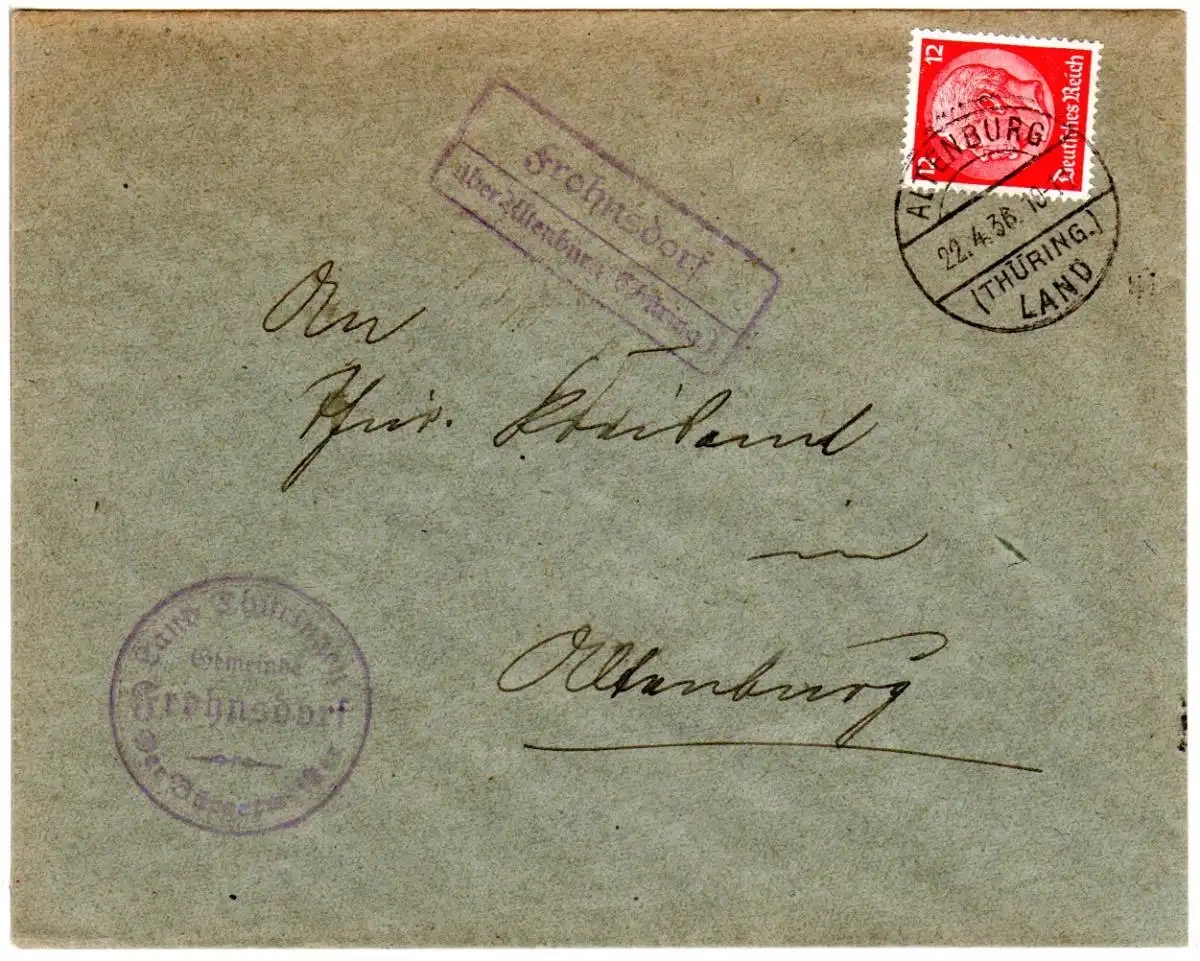 12
12
Deutsches Reich
ALTENBURG
22.4.36.
(THÜRING.)
LAND
Frohnsdorf
über Altenburg (Thüring.)
An
Thür.
in
Altenburg
Land Thüringen
Gemeinde
Frohnsdorf
Der Bürgermeister